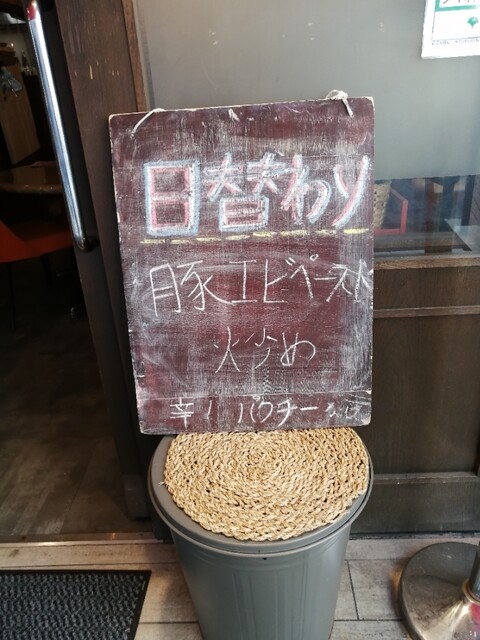 日替わり
豚エビペースト
炒め
辛ノパクチーなし